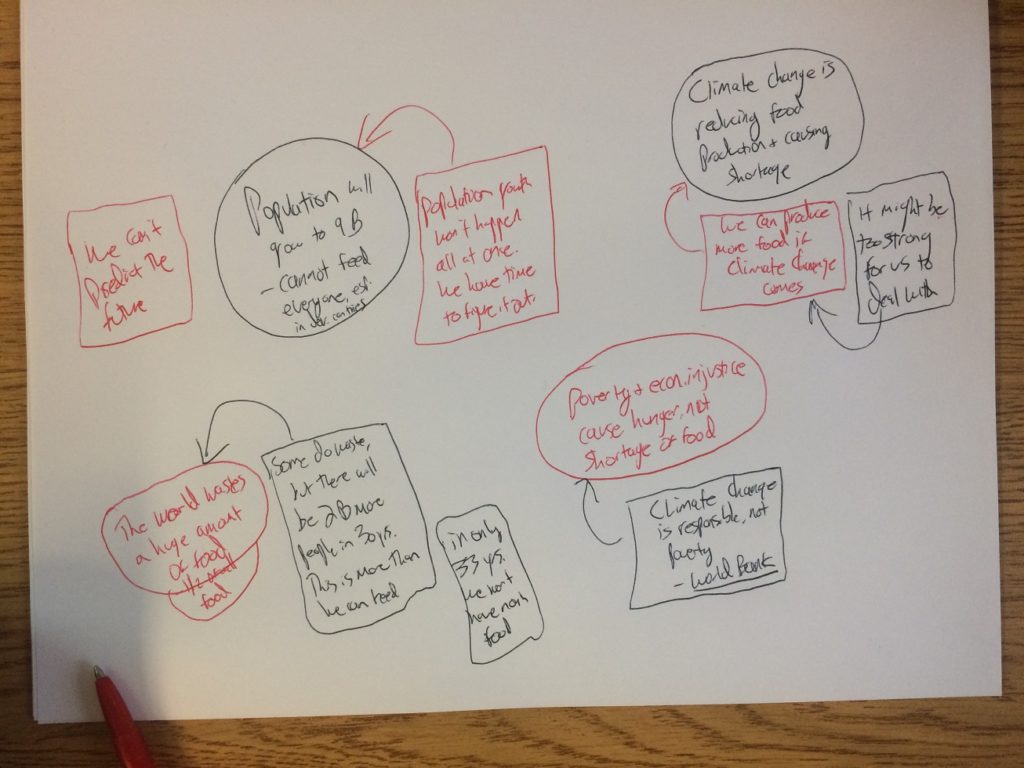 We can't
Predict the
future
Population will
grow to 9B
- cannot feed
everyone, esp.
in dev. countries
Population growth
won't happen
all at once.
We have time
to figure it out.
Climate change is
reducing food
production + causing
shortage
We can produce
more food if
Climate change
comes
It might be
too strong
for us to
deal with
The world wastes
a huge amount
of food
1/2 of all
food
Some do waste,
but there will
be 2B more
people in 30 yrs.
This is more than
we can feed
in only
33 yrs.
we won't
have
food
Poverty + econ. injustice
cause hunger, not
shortage of food
Climate change
is responsible, not
poverty
- World Bank